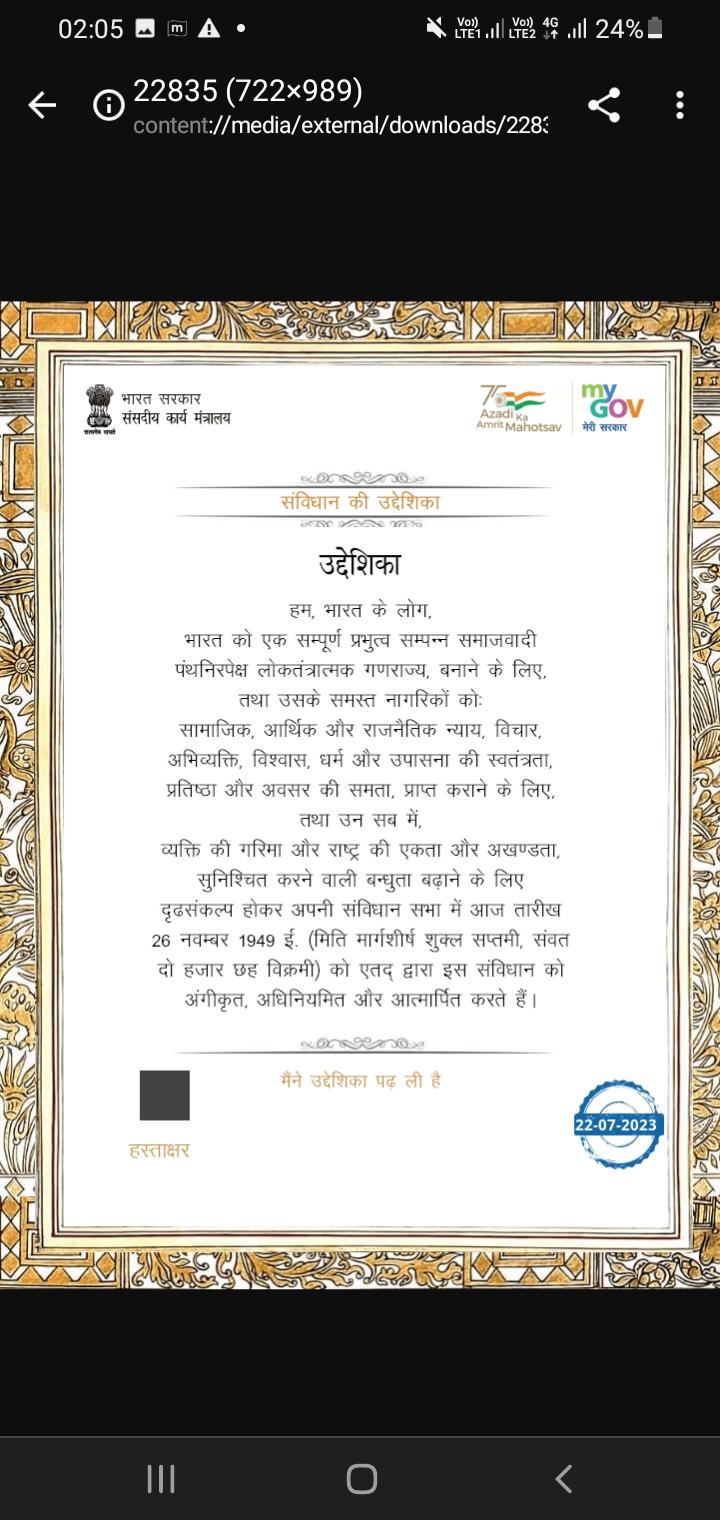 02:05
Vo)) LTE1 Vo)) LTE2 4G 24%
22835 (722×989)
content://media/external/downloads/2283
भारत सरकार
संसदीय कार्य मंत्रालय
सत्यमेव जयते
75
Azadi Ka
Amrit Mahotsav
my
GOV
मेरी सरकार
संविधान की उद्देशिका
उद्देशिका
हम, भारत के लोग,
भारत को एक सम्पूर्ण प्रभुत्व सम्पन्न समाजवादी
पंथनिरपेक्ष लोकतंत्रात्मक गणराज्य, बनाने के लिए,
तथा उसके समस्त नागरिकों कोः
सामाजिक, आर्थिक और राजनैतिक न्याय, विचार,
अभिव्यक्ति, विश्वास, धर्म और उपासना की स्वतंत्रता,
प्रतिष्ठा और अवसर की समता, प्राप्त कराने के लिए,
तथा उन सब में,
व्यक्ति की गरिमा और राष्ट्र की एकता और अखण्डता,
सुनिश्चित करने वाली बन्धुता बढ़ाने के लिए
दृढसंकल्प होकर अपनी संविधान सभा में आज तारीख
26 नवम्बर 1949 ई. (मिति मार्गशीर्ष शुक्ल सप्तमी, संवत
दो हजार छह विक्रमी) को एतद् द्वारा इस संविधान को
अंगीकृत, अधिनियमित और आत्मार्पित करते हैं।
मैंने उद्देशिका पढ़ ली है
हस्ताक्षर
22-07-2023